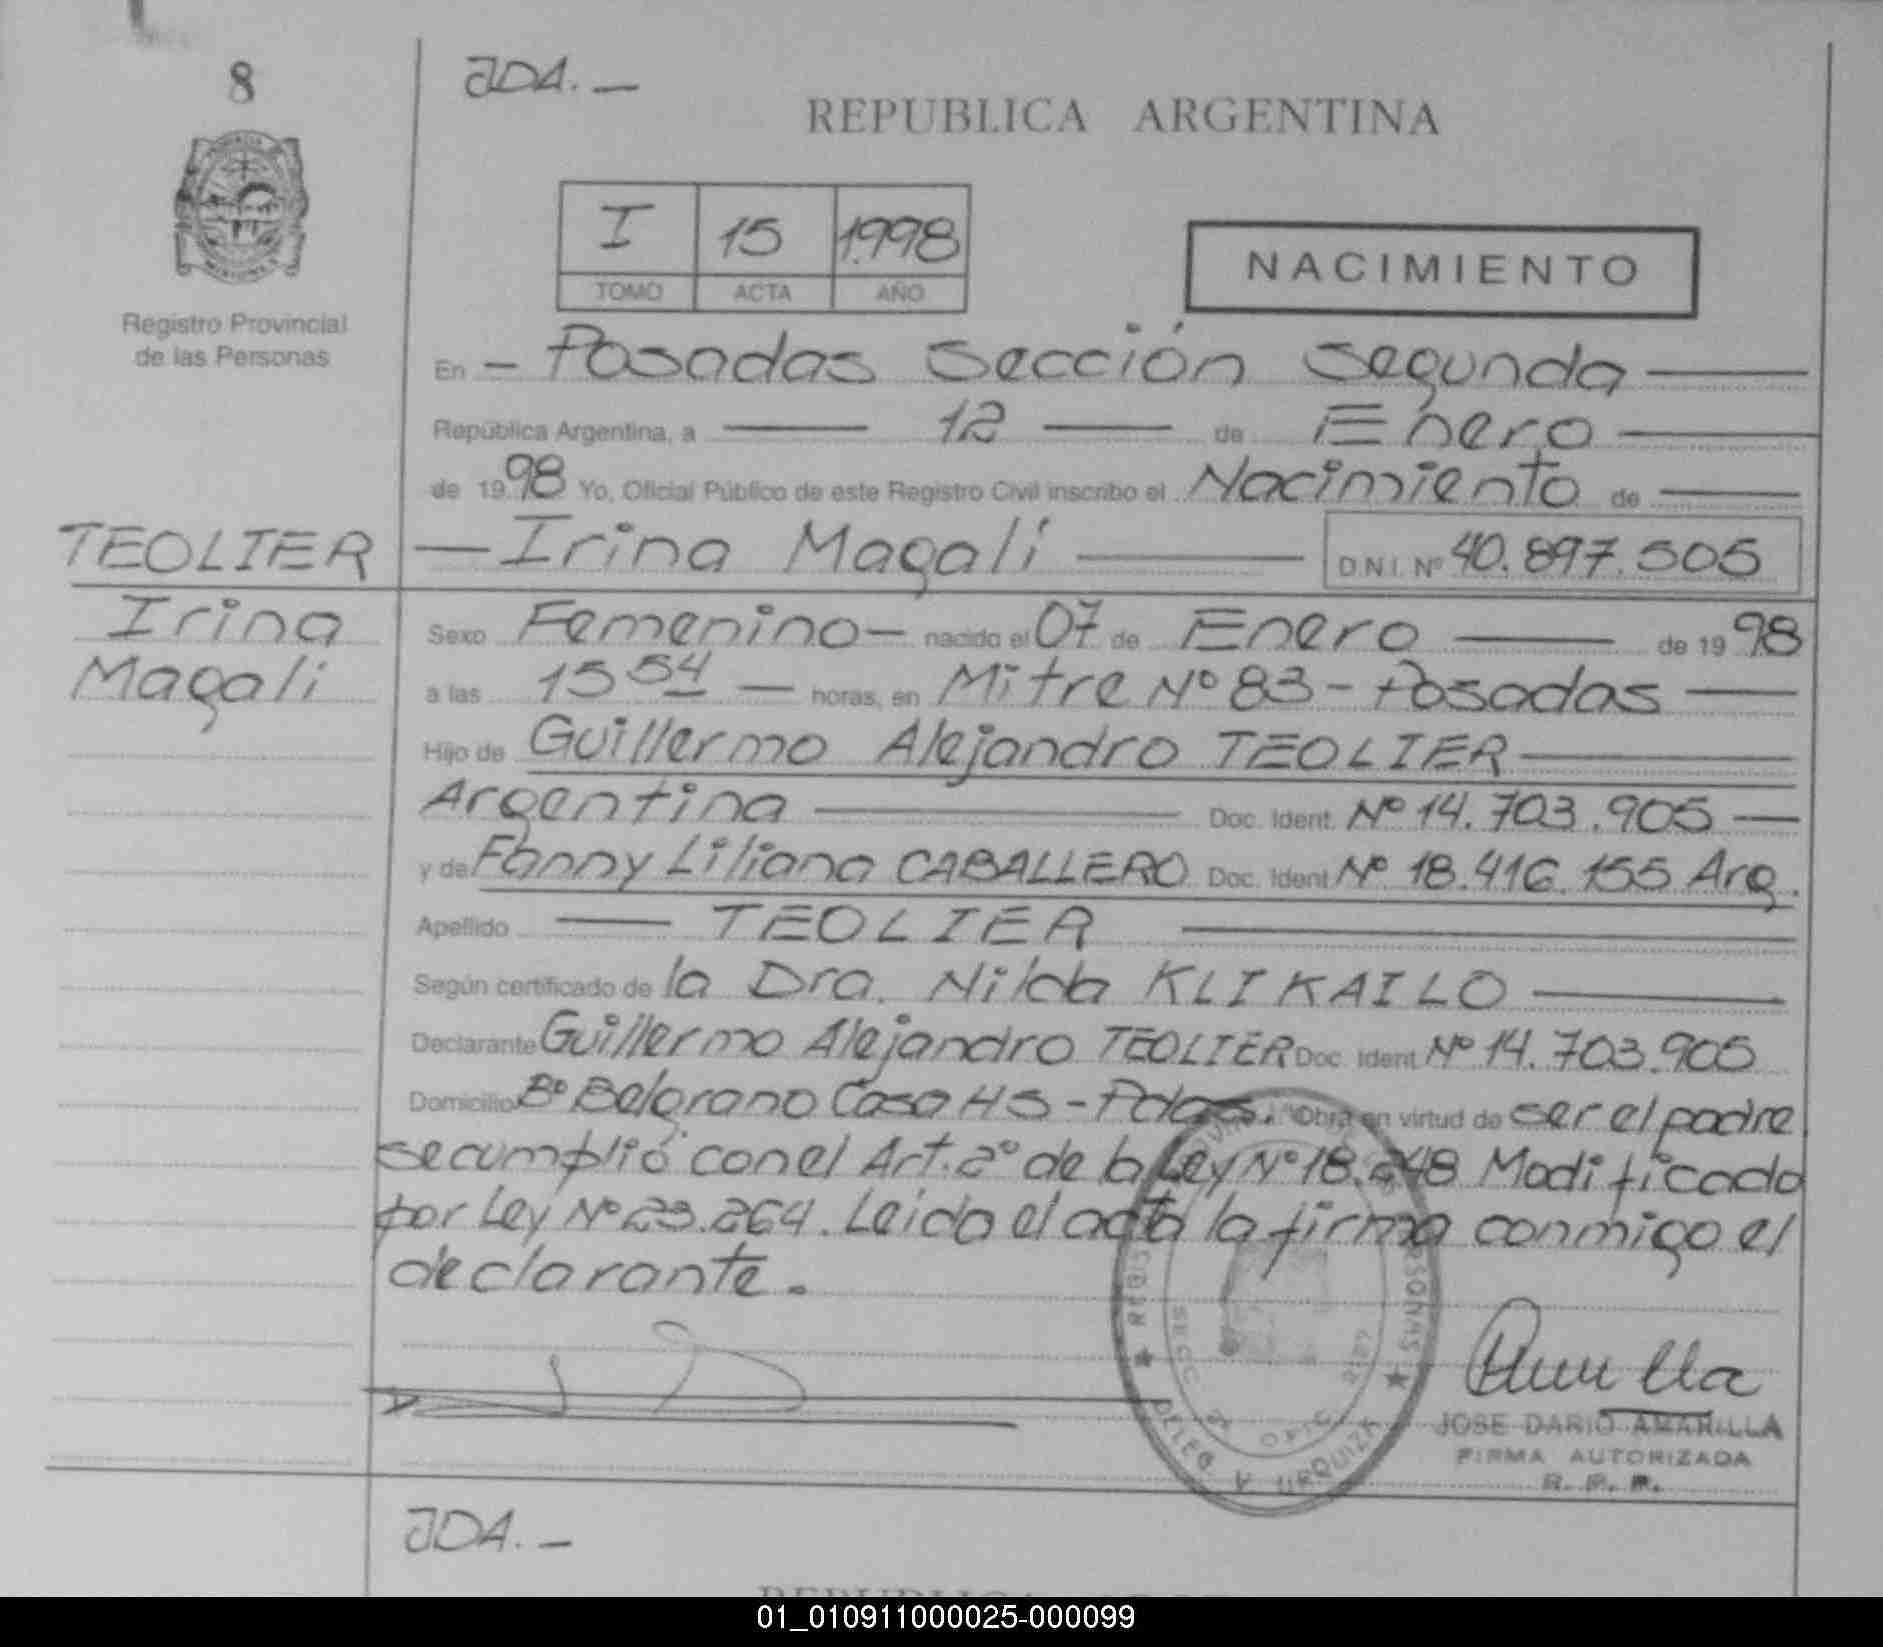 8
JDA. —
REPUBLICA ARGENTINA
I 15 1.998
TOMO ACTA AÑO
NACIMIENTO
Registro Provincial
de las Personas
En - Posadas Sección Segunda
República Argentina, a 12 de Enero
de 1998 Yo, Oficial Público de este Registro Civil inscribo el Nacimiento de
TEOLIER
Irina
Magali
Irina Magali D.N.I. Nº 40.897.505
Sexo Femenino - nacido el 07 de Enero de 1998
a las 15 54 - horas, en Mitre Nº 83 - Posadas
Hijo de Guillermo Alejandro TEOLIER
Argentina Doc. Ident. Nº 14.703.905 —
y de Fanny Liliana CABALLERO Doc. Ident Nº 18.416.155 Arg.
Apellido TEOLIER
Según certificado de la Dra. Nilda KLIKAILO
Declarante Guillermo Alejandro TEOLIER Doc. Ident Nº 14.703.905
Domicilio Bº Belgrano Casa 45 - Pdas. Obra en virtud de ser el padre
se cumplió con el Art. 2º de la Ley Nº 18.248 Modificado
por Ley Nº 23.264. Leida el acta la firma conmigo el
declarante.
JOSE DARIO AMARILLA
FIRMA AUTORIZADA
R. P. P.
SECC 2
OFIC
DELEG V URQUIZA
JDA. —
01_010911000025-000099